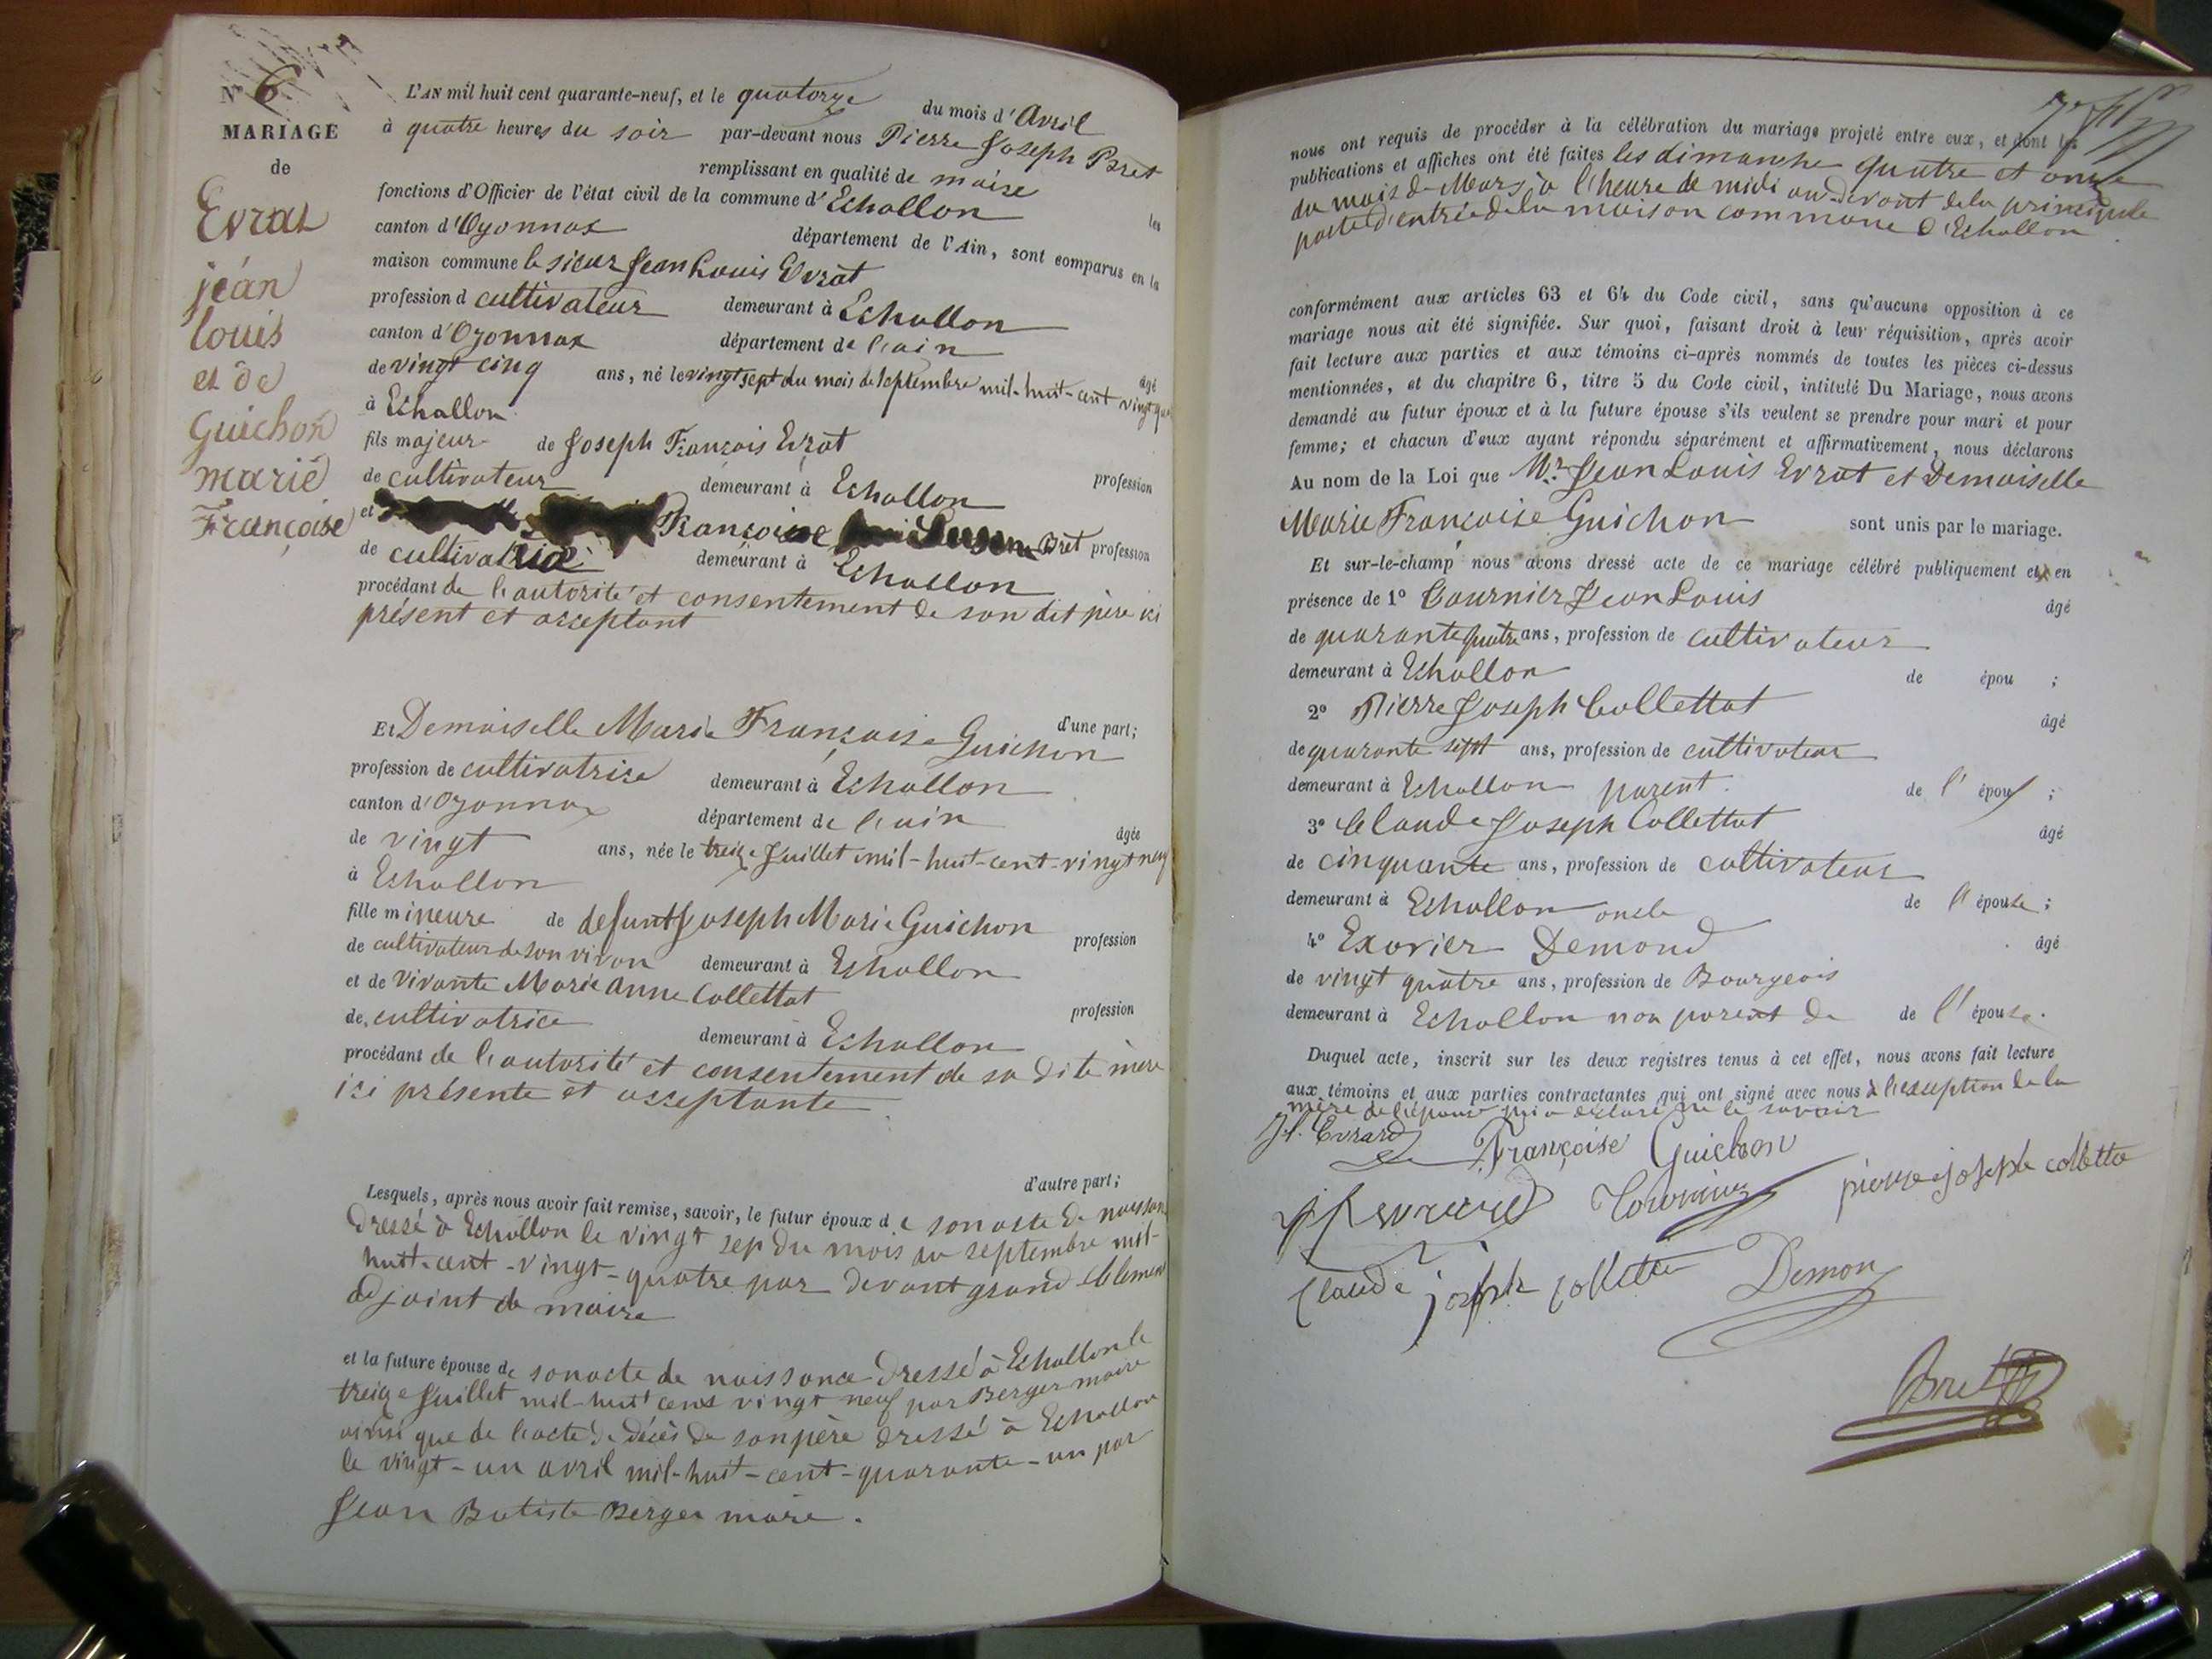 N° 6
MARIAGE
de
Evrat
jean
louis
et de
Guichon
marie
Françoise
L'AN mil huit cent quarante-neuf, et le quatorze du mois d'Avril
à quatre heures du soir par-devant nous Pierre Joseph Bret
remplissant en qualité de maire les
fonctions d'Officier de l'état civil de la commune d'Echallon
canton d'Oyonnax département de l'Ain, sont comparus en la
maison commune le sieur Jean Louis Evrat
profession d cultivateur demeurant à Echallon
canton d'Oyonnax département de l'ain
âgé
de vingt cinq ans, né le vingt sept du mois de septembre mil-huit-cent vingt qua
à Echallon
fils majeur de Joseph François Evrat
profession
de cultivateur demeurant à Echallon
et Françoise Bret profession
de cultivatrice demeurant à Echallon
procédant de l'autorité et consentement de son dit père ici
présent et acceptant
d'une part;
Et Demoiselle Marie Françoise Guichon
profession de cultivatrise demeurant à Echallon
canton d'Oyonnax département de l'ain
âgée
de vingt ans, née le treize Juillet mil-huit-cent-vingt neuf
à Echallon
fille mineure de defunt Joseph Marie Guichon
profession
de cultivateur de son vivan demeurant à Echallon
et de vivante Marie anne Collettat
profession
de cultivatrice demeurant à Echallon
procédant de l'autorité et consentement de sa dite mère
ici présente et acceptante
d'autre part;
Lesquels, après nous avoir fait remise, savoir, le futur époux de son acte de naissan
dressé à Echallon le vingt sep du mois de septembre mil-
huit-cent-vingt-quatre par devant grand Clement
adjoint de maire
et la future épouse de son acte de naissance dressé à Echallon le
treize Juillet mil-huit cens vingt neuf par Berger maire
ainsi que de l'acte de décès de son père dressé à Echallon
le vingt-un avril mil-huit-cent-quarante-un par
Jean Batiste Berger maire.
nous ont requis de procéder à la célébration du mariage projeté entre eux, et dont les
publications et affiches ont été faites les dimanche quatre et onze
du mois de Mars à l'heure de midi au-devant de la principale
porte d'entrée de la maison commune d'Echallon
conformément aux articles 63 et 64 du Code civil, sans qu'aucune opposition à ce
mariage nous ait été signifiée. Sur quoi, faisant droit à leur réquisition, après avoir
fait lecture aux parties et aux témoins ci-après nommés de toutes les pièces ci-dessus
mentionnées, et du chapitre 6, titre 5 du Code civil, intitulé Du Mariage, nous avons
demandé au futur époux et à la future épouse s'ils veulent se prendre pour mari et pour
femme; et chacun d'eux ayant répondu séparément et affirmativement, nous déclarons
Au nom de la Loi que Mr. Jean Louis Evrat et Demoiselle
Marie Françoise Guichon sont unis par le mariage.
Et sur-le-champ nous avons dressé acte de ce mariage célébré publiquement et en
présence de 1° Tournier Jean Louis âgé
de quarante quatre ans, profession de cultivateur
demeurant à Echallon de épou ;
2° Pierre Joseph Collettat âgé
de quarante sept ans, profession de cultivateur
demeurant à Echallon parent de l'épou ;
3° Claude Joseph Collettat âgé
de cinquante ans, profession de cultivateur
demeurant à Echallon oncle de l'épouse ;
4° Exavier Demond âgé
de vingt quatre ans, profession de Bourgeois
demeurant à Echallon non parent de de l'épouse.
Duquel acte, inscrit sur les deux registres tenus à cet effet, nous avons fait lecture
aux témoins et aux parties contractantes qui ont signé avec nous à l'exception de la
mère de l'épouse qui a déclaré ne le savoir
J.l. Evrard
Françoise Guichon
Tournier
pierre joseph colletta
Claude joseph colletta
Demon
Bret